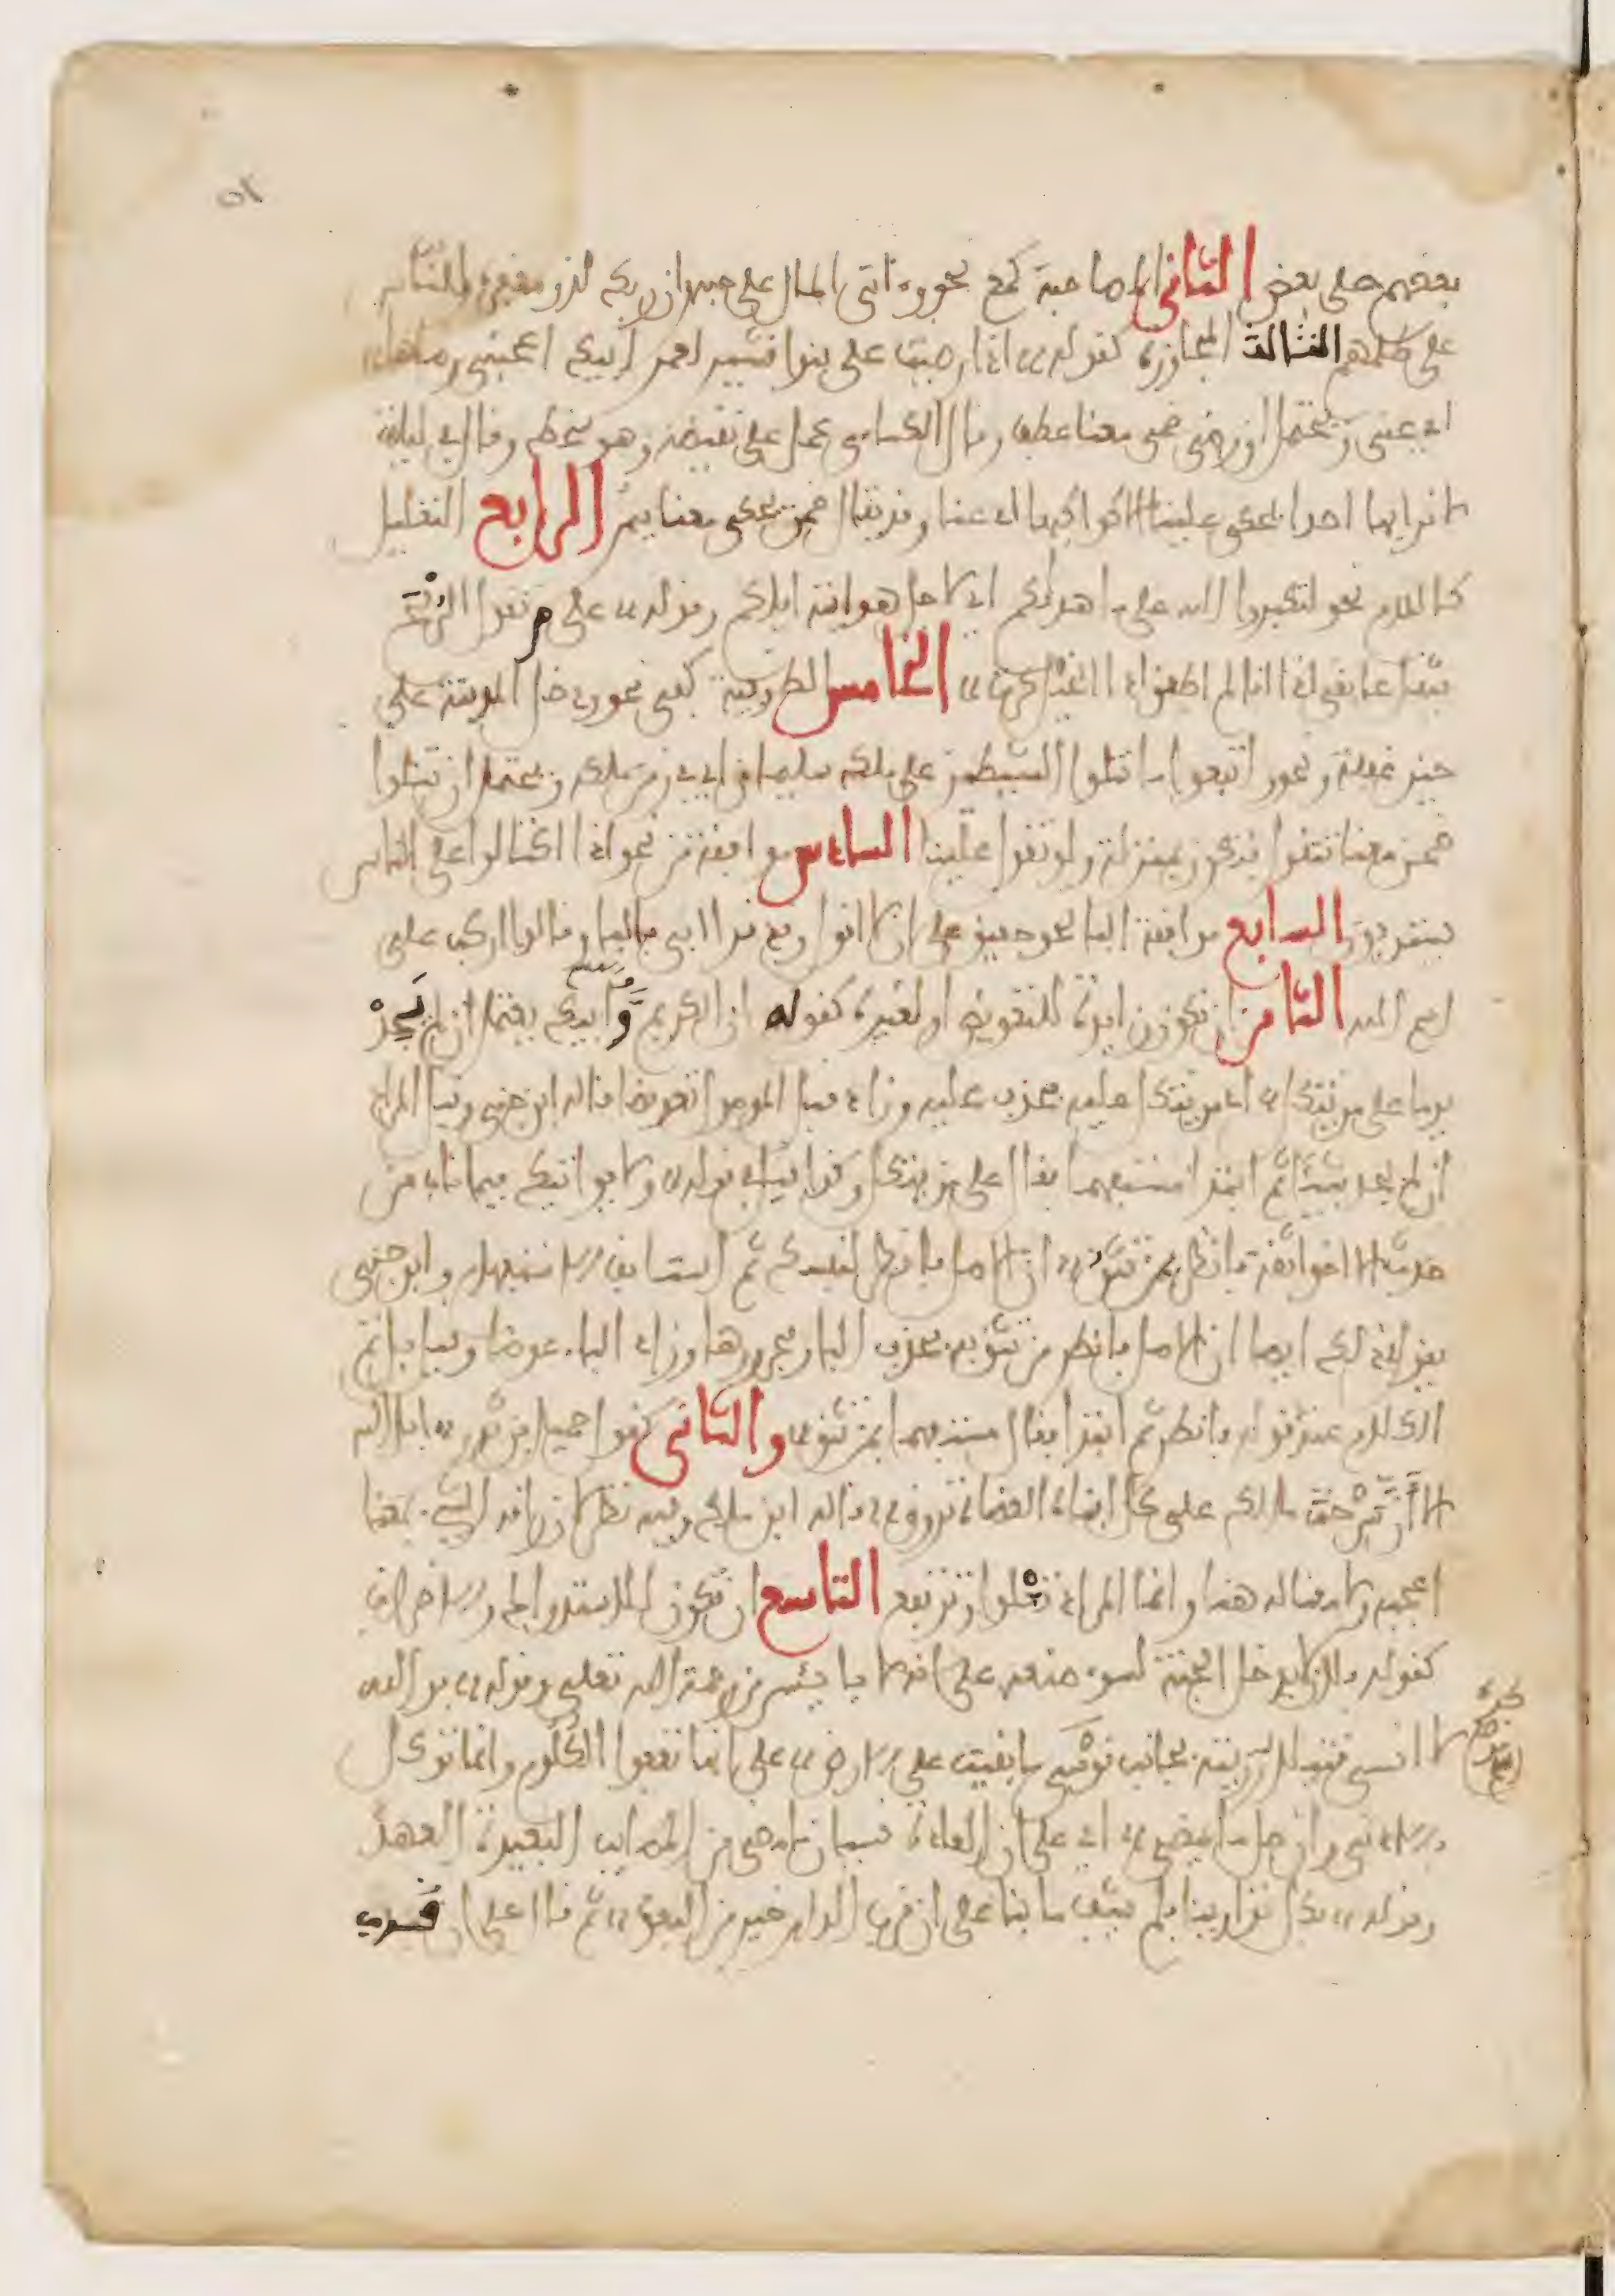 ٥٢
بعضهم على بعض الثاني المصاحبة كمع نحو وءاتى المال على حبه وان ربك لذو مغفرة للناس
على ظلمهم الثالث المجاوزة كقوله اذا رضيت على بنوا قشير لعمر ابيك اعجبنى رضاها
اي عنى ويحتمل ان رضى ضمن معنا عطف وقال الكساءى حمل على نقيضه وهو سخط وقال في ليلة
لا نرا بها احدا يحكى علينا الا كواكبها اي عنا وقد يقال ضمن يحكى معنا ينم الرابع التعليل
كاللام نحو لتكبروا الله على ما هداكم اي لاجل هدايته اياكم وقوله على م تقول الرمح
يثقل عاتقى اذا انا لم اطعن اذا الخيل كرت الخامس الظرفية كفى نحو ودخل المدينة على
حين غفلة ونحو واتبعوا ما تتلوا الشيطين على ملك سليمان اي في زمن ملكه ويحتمل ان تتلوا
ضمن معنا تتقول فيكون بمنزلة ولو تقول علينا السادس موافقة من نحو اذا اكتالوا على الناس
يستوفون السابع موافقة البا نحو حقيق على ان لا اقول وقد قرا ابى بالبا وقالوا اركب على
اسم الله الثامن ان تكون زايدة للتعويض او لغيره كقوله ان الكريم وابيك يعتمل ان لم يجد
يوما على من يتكل اي من يتكل عليه فحذف عليه وزاد قبل الموصول تعويضا قاله ابن جنى وقيل المراد
ان لم يجد شيئا ثم ابتدا مستفهما فقال على من يتكل وكذا قيل في قوله ولا يواتيك فيما ناب من
حدث الا اخوا ثقة فانظر بمن تثق ان الاصل فانظر لنفسك ثم استانف الاستفهام وابن جنى
يقول في ذلك ايضا ان الاصل فانظر من تثق به فحذف البا ومجرورها وزاد البا عوضا وقيل بل تم
الكلام عند قوله فانظر ثم ابتدا فقال مستفهما بمن تثق والثانى كقول حميد بن ثور ابى الله
الا ان سرحت مالك على كل افنان العضاه تروق قاله ابن مالك وفيه نظر لان راقه الشي بمعنا
اعجبه ولا معنا له هنا وانما المراد تعلوا وترتفع التاسع ان تكون للاستدراك والاضراب
كقوله فلان لا يدخل الجنة لسوء صنعه على انه لا يايئس من رحمة الله تعلى وقوله فو الله
لا انسى قتيلا رزيته بجانب قوسى ما بقيت على الارض على انها تعفوا الكلوم وانما نوكل
بالادنى وان جل ما يمضى اي على ان العادة نسيان المصايب البعيدة العهد
وقوله بكل تداوينا فلم يشف ما بنا على ان قرب الدار خير من البعد ثم قال على ان قرب